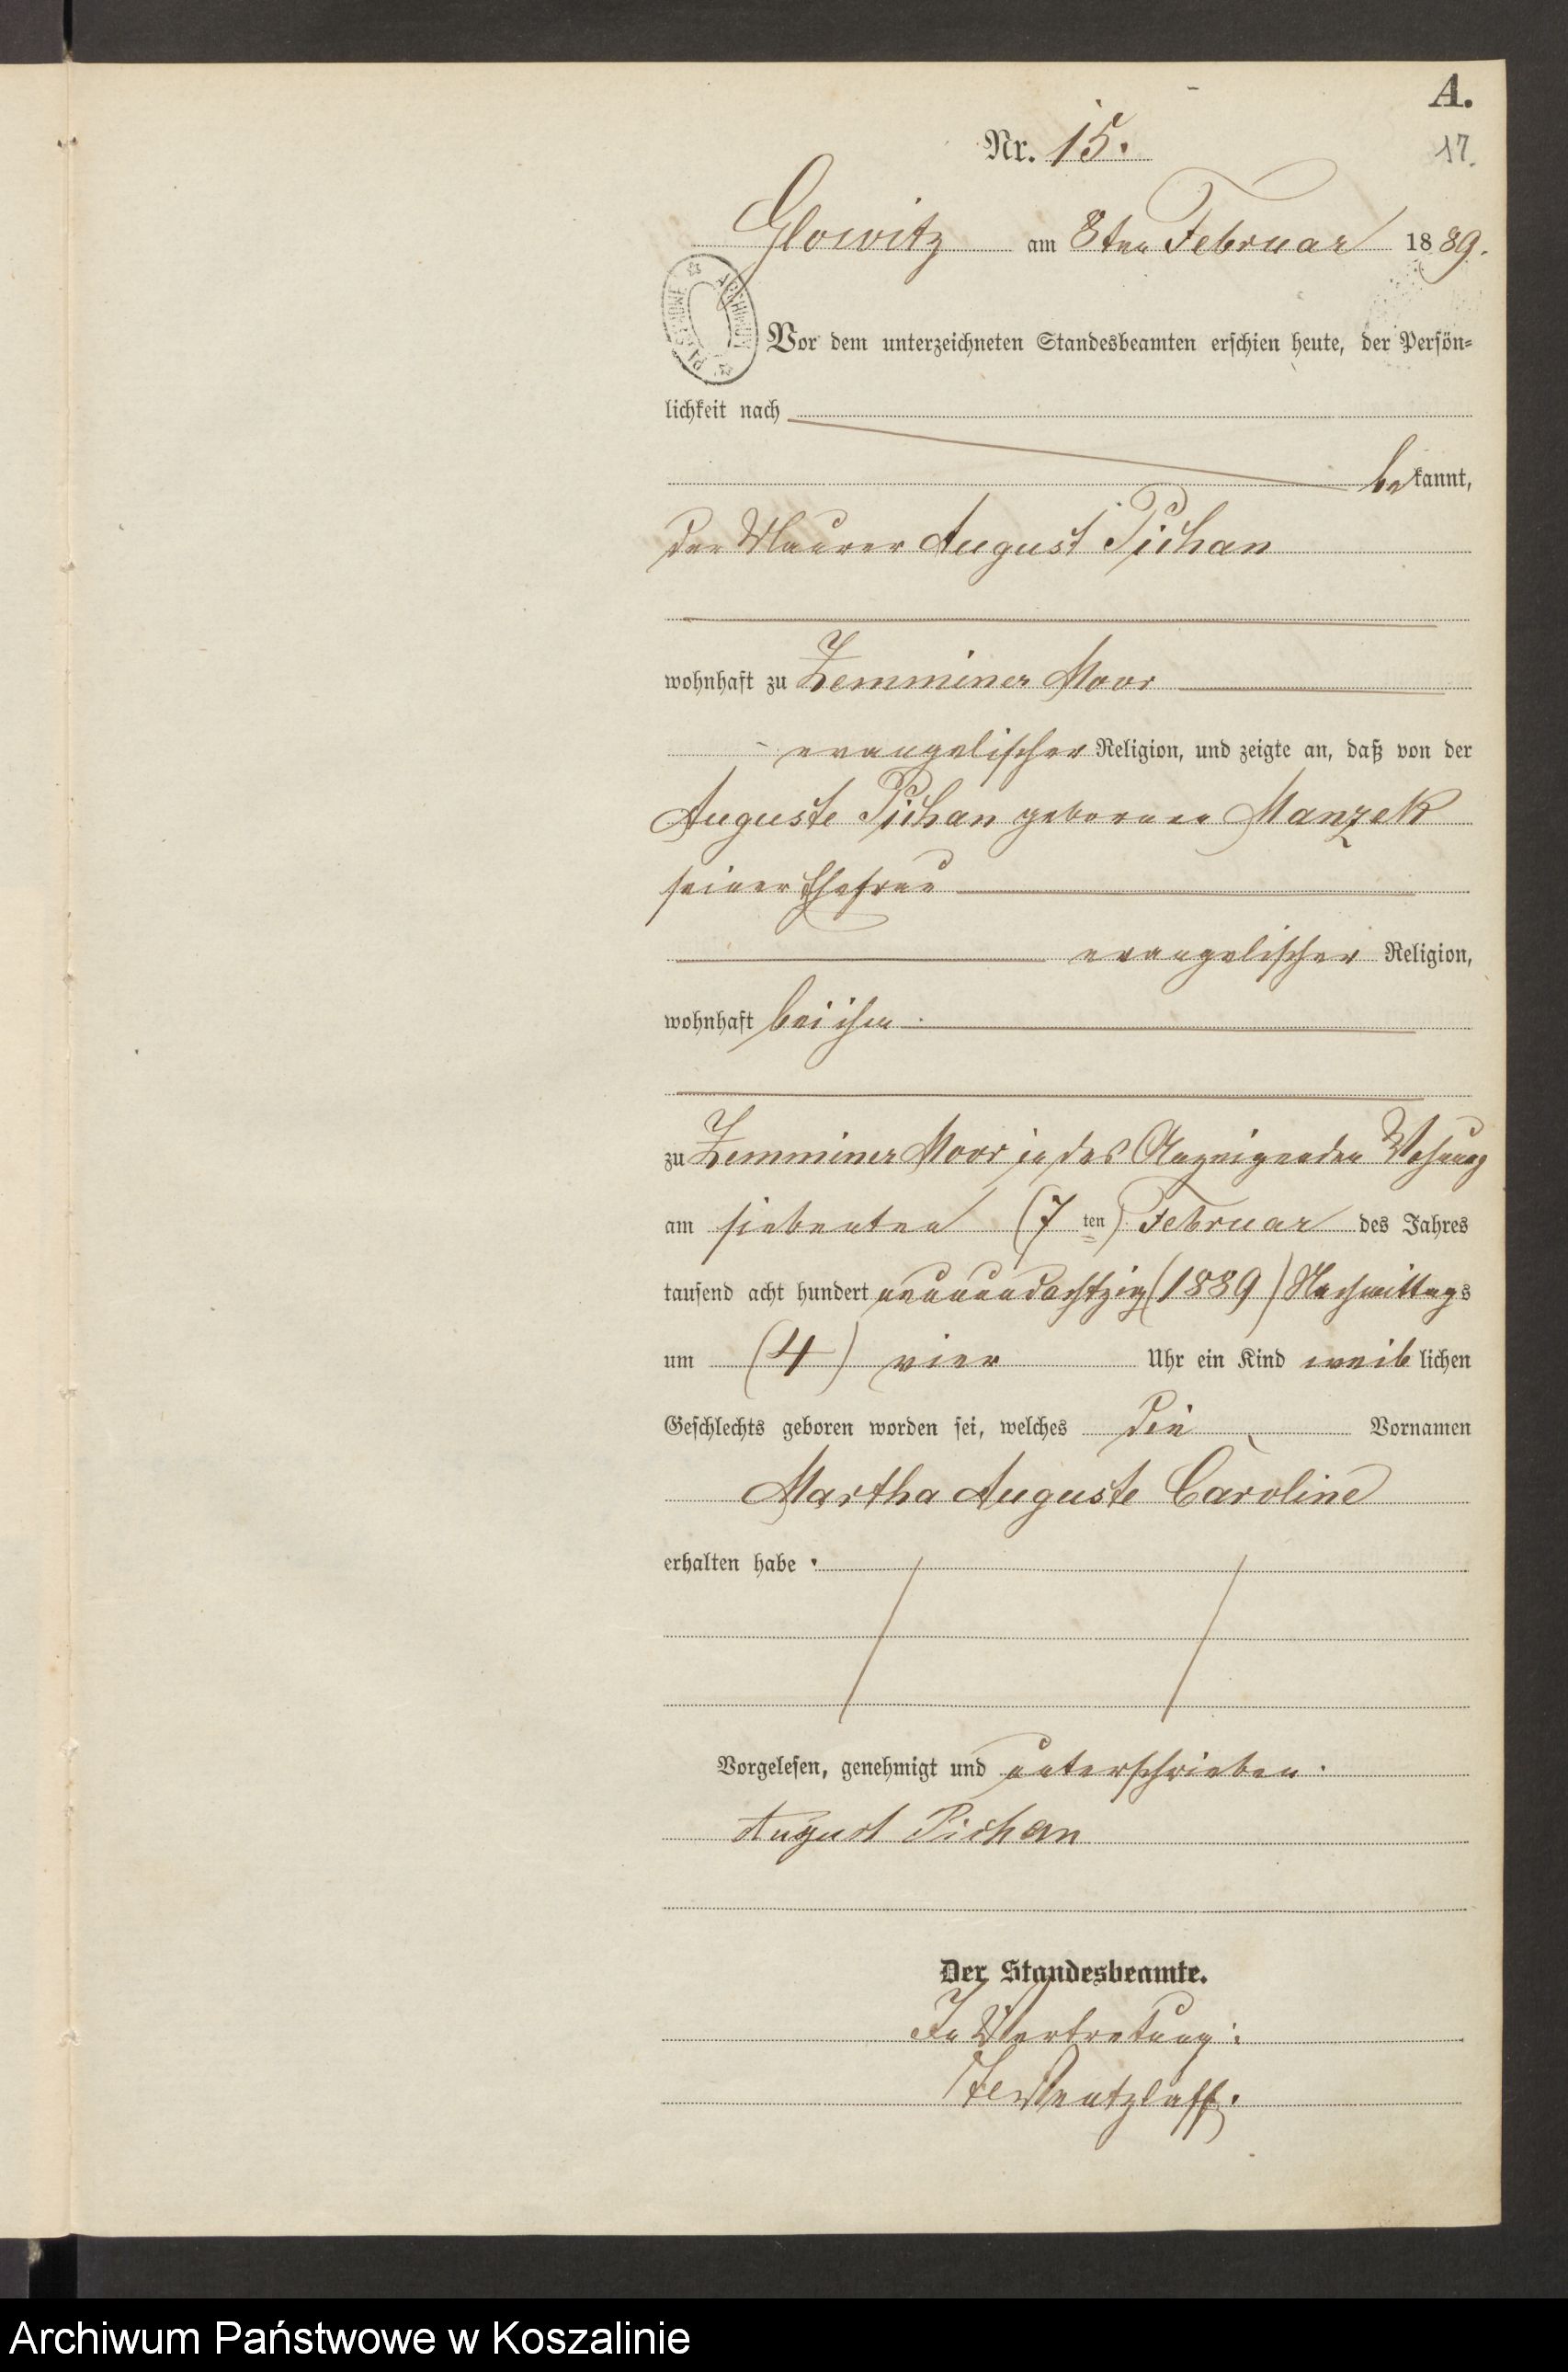 A.
Nr. 15.
17.
Glowitz am 8ten Februar 1889.
ARCHIWUM PAŃSTWOWE
Vor dem unterzeichneten Standesbeamten erschien heute, der Persön-
lichkeit nach
bekannt,
der Maurer August Pichan
wohnhaft zu Zemminer Moor
evangelischer Religion, und zeigte an, daß von der
Auguste Pichan geborene Manzek
seiner Ehefrau
evangelischer Religion,
wohnhaft bei ihm.
zu Zemminer Moor in des Anzeigenden Wohnung
am siebenten (7ten) Februar des Jahres
tausend acht hundert neunundachtzig (1889) Nachmittags
um (4) vier Uhr ein Kind weiblichen
Geschlechts geboren worden sei, welches die Vornamen
Martha Auguste Caroline
erhalten habe.
Vorgelesen, genehmigt und unterschrieben.
August Pichan
Der Standesbeamte.
In Vertretung:
Wentzlaff.
Archiwum Państwowe w Koszalinie